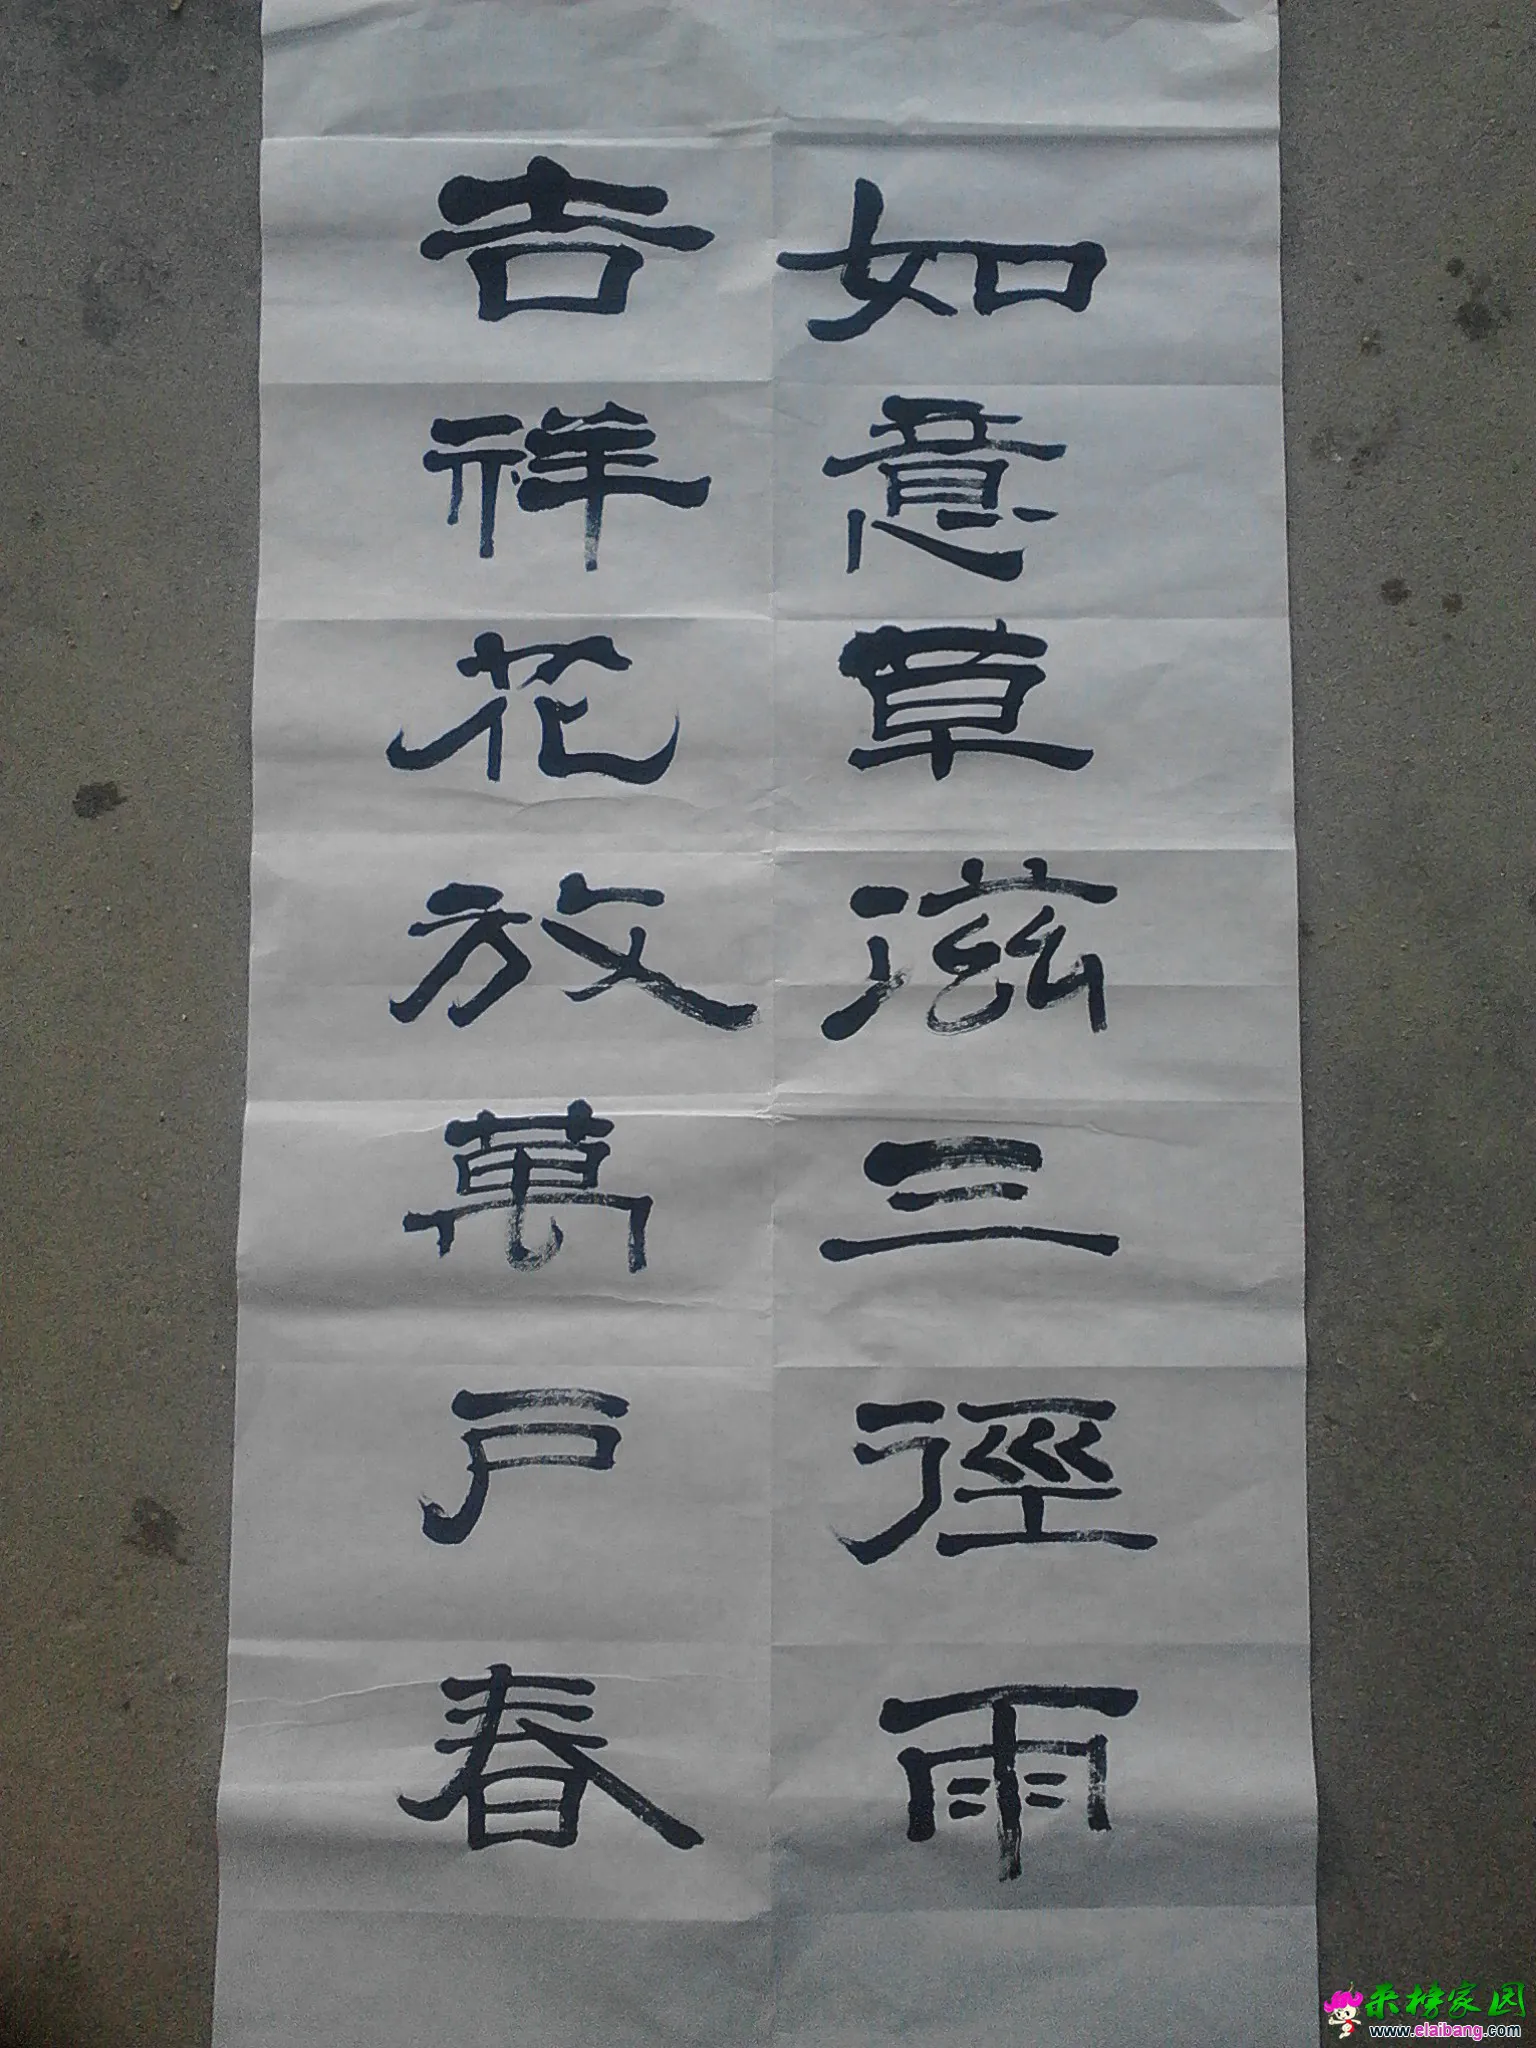 如意草滋三徑雨
吉祥花放萬戸春
来榜家园
www.elaibang.com